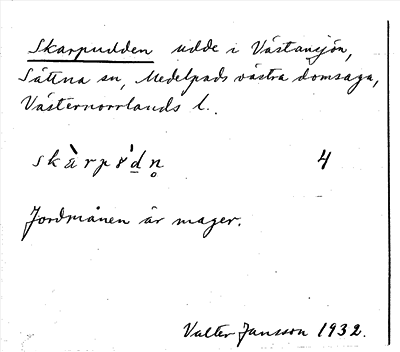 Skarpudden udde i Västansjön,
Sättna sn, Medelpads västra domsaga,
Västernorrlands l.
skàrpúd̲n̥ 4
Jordmånen är mager.
Valter Jansson 1932.